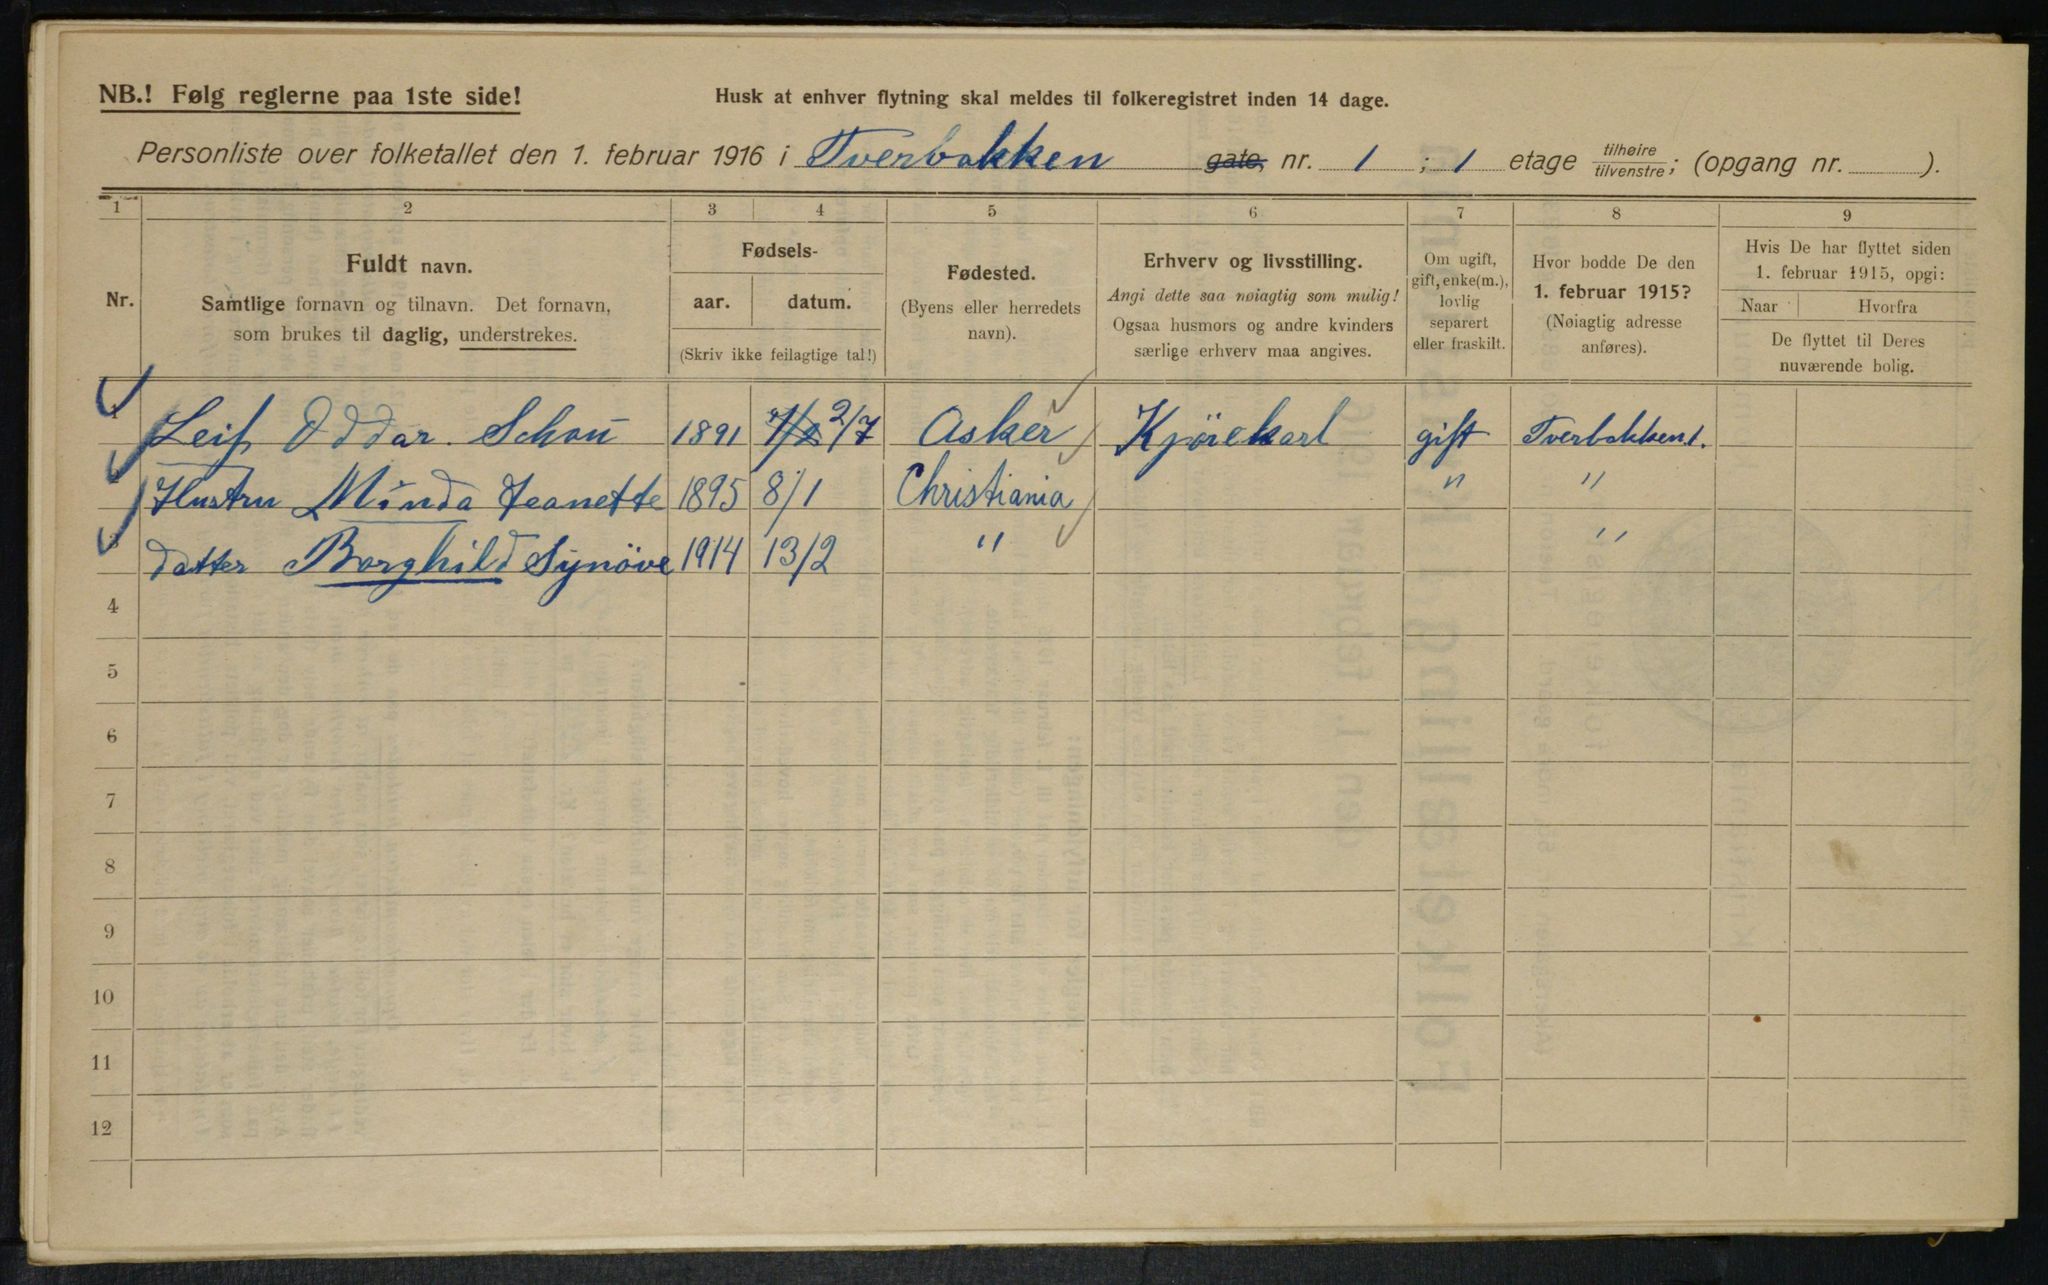 NB.! Følg reglerne paa 1ste side!
Husk at enhver flytning skal meldes til folkeregistret inden 14 dage.
Personliste over folketallet den 1. februar 1916 i Tverbakken gate, nr. 1 ; 1 etage tilhøire tilvenstre; (opgang nr. ).
1 2 3 4 5 6 7 8 9
Nr.
Fuldt navn.
Samtlige fornavn og tilnavn. Det fornavn,
som brukes til daglig, understrekes.
Fødsels-
aar. datum.
(Skriv ikke feilagtige tal!)
Fødested.
(Byens eller herredets
navn).
Erhverv og livsstilling.
Angi dette saa nøiagtig som mulig!
Ogsaa husmors og andre kvinders
særlige erhverv maa angives.
Om ugift,
gift, enke(m.),
lovlig
separert
eller fraskilt.
Hvor bodde De den
1. februar 1915?
(Nøiagtig adresse
anføres).
Hvis De har flyttet siden
1. februar 1915, opgi:
Naar Hvorfra
De flyttet til Deres
nuværende bolig.
1 Leif Oddar Schou 1891 7/2 2/7 Asker Kjörekarl gift Tverbakken 1.
2 Hustru Minda Jeanette 1895 8/1 Christiania " "
3 datter Borghild Synöve 1914 13/2 " "
4
5
6
7
8
9
10
11
12